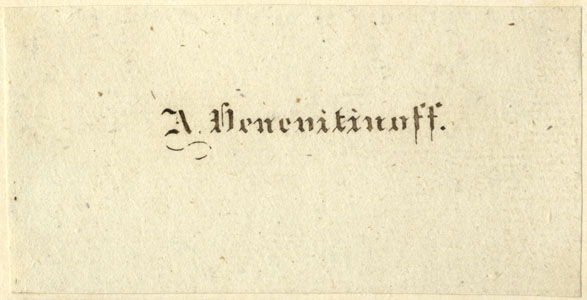 A. Venevitinoff.